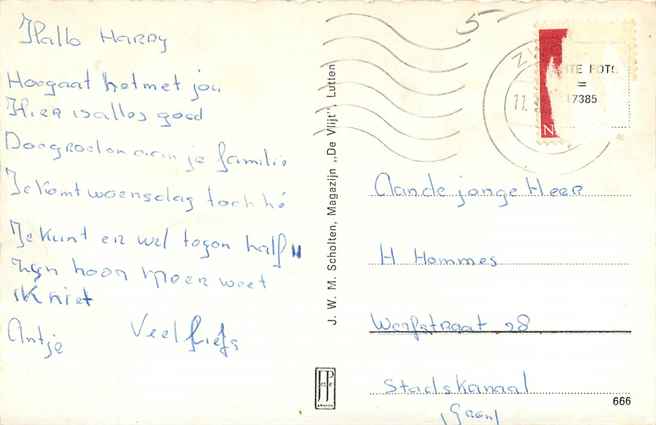 Hallo HARRY
Hoegaat hetmet jou
Hier isalles goed
Doegroeten aan je familie
Je komt woensdag toch hé
Je kunt er wel tegen half 11
zijn hoor meer weet
ik niet
Veel liefs
Antje
J. W. M. Scholten, Magazijn „De Vlijt”, Lutten
5-
ZWO
11.
N
TE FOTO
=
17385
Aan de jonge Heer
H Hommes
Werfstraat 28
Stadskanaal
(Gron)
666